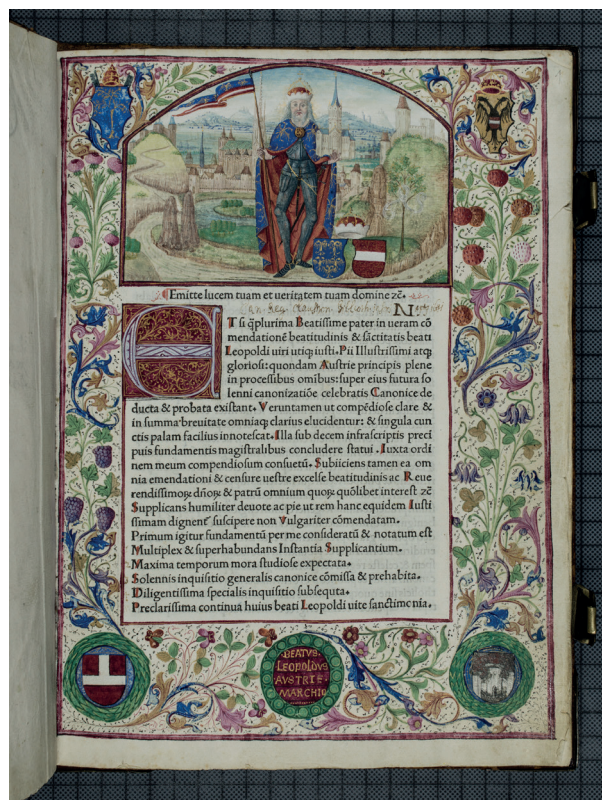 Emitte lucem tuam et ueritatem tuam domine ⁊c̄.
N
ET si q̃plurima Beatissime pater in ueram cõ
mendationẽ beatitudinis & sãctitatis beati
Leopoldi uiri utiq; iusti. Pii Illustrissimi atq;
gloriosi: quondam Austrie principis plene
in processibus omibus: super eius futura so
lenni canonizatiõe celebratis Canonice de
ducta & probata existant. Veruntamen ut compẽdiose clare &
in summa breuitate omniaq; clarius elucidentur: & singula cun
ctis palam facilius innotescat. Illa sub decem infrascriptis preci
puis fundamentis magistralibus concludere statui. Iuxta ordi
nem meum compendiosum consuetũ. Subiiciens tamen ea om
nia emendationi & censure uestre excelse beatitudinis ac Reue
rendissimoꝝ dñoꝝ & patrũ omnium quoꝝ quõlibet interest ⁊c̄
Supplicans humiliter deuote ac pie ut rem hanc equidem Iusti
ssimam dignent̃ suscipere non Vulgariter cõmendatam.
Primum igitur fundamentũ per me consideratũ & notatum est
Multiplex & superhabundans Instantia Supplicantium.
Maxima temporum mora studiose expectata.
Solennis inquisitio generalis canonice cõmissa & prehabita.
Diligentissima specialis inquisitio subsequta.
Preclarissima continua huius beati Leopoldi uite sanctimonia.
BEATVS.
LEOPOLDVS
AVSTRIE.
MARCHIO